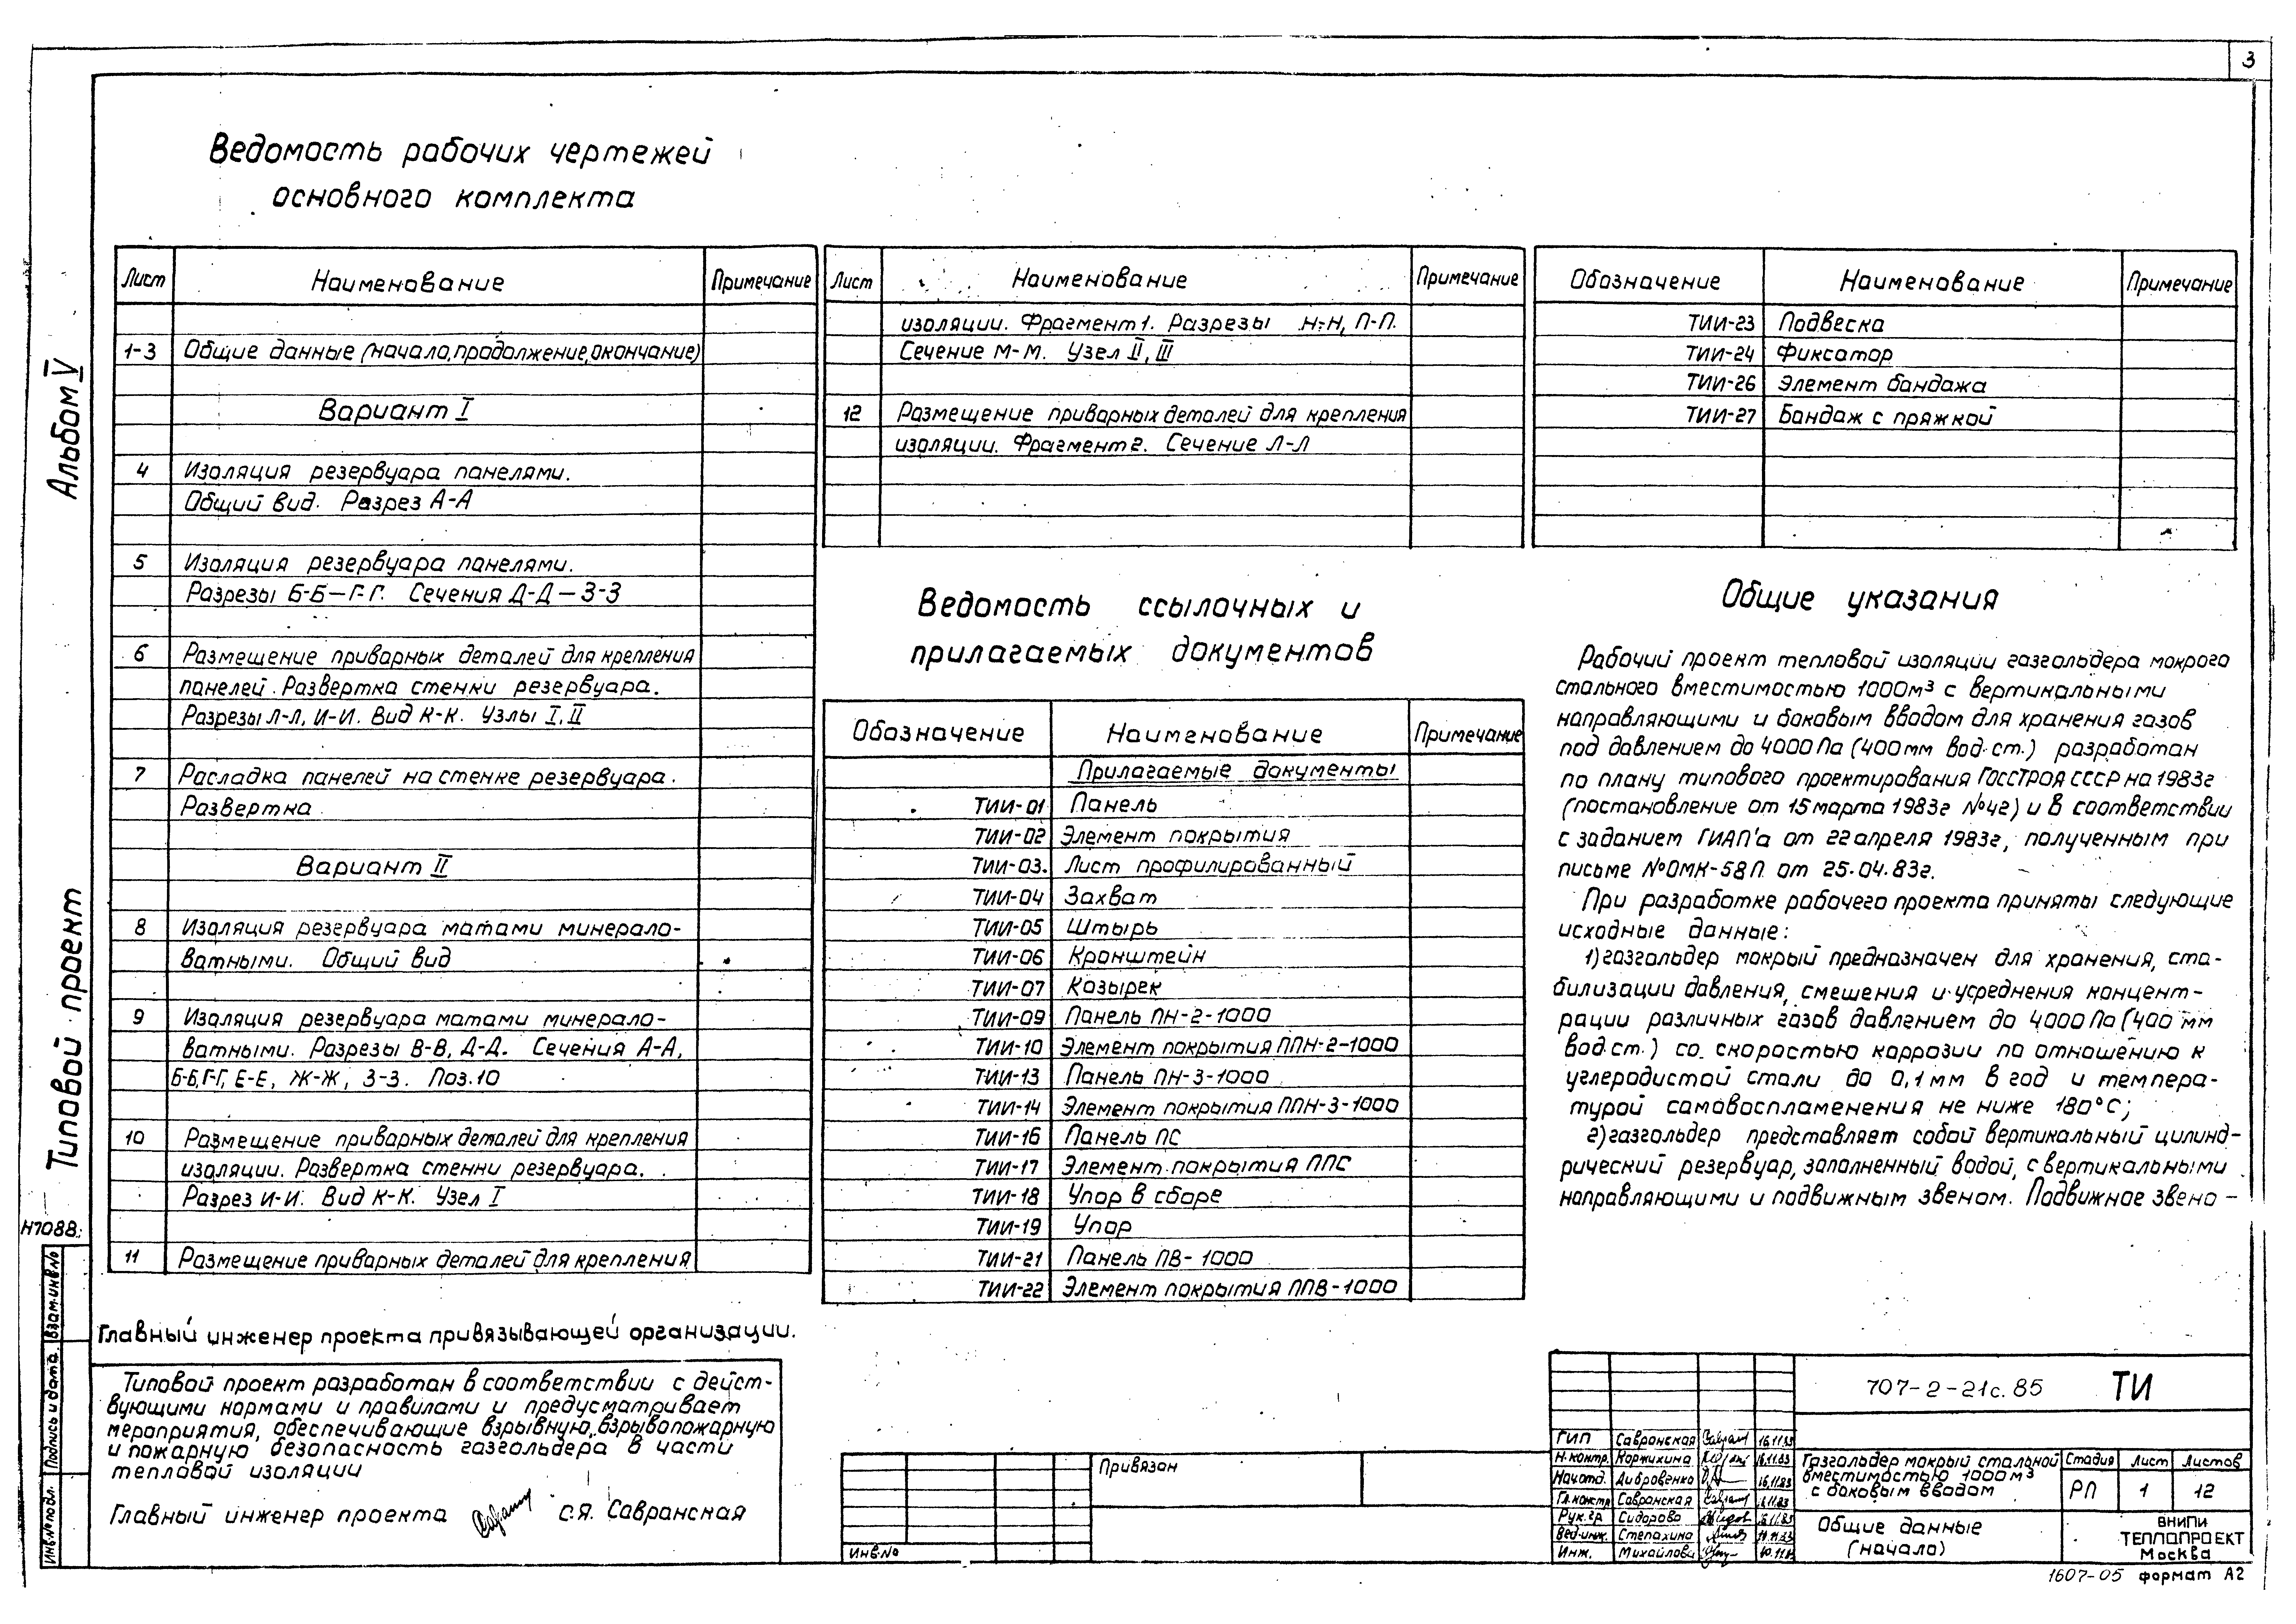 3
Альбом V
Типовой проект
Н7088
Взам.инв.№
Подпись и дата
Инв.№подл.
Ведомость рабочих чертежей
основного комплекта
Лист Наименование Примечание
1-3 Общие данные (начало, продолжение, окончание)
Вариант I
4 Изоляция резервуара панелями.
Общий вид. Разрез А-А
5 Изоляция резервуара панелями.
Разрезы Б-Б—Г-Г. Сечения Д-Д—З-З
6 Размещение приварных деталей для крепления
панелей. Развертка стенки резервуара.
Разрезы Л-Л, И-И. Вид К-К. Узлы I, II
7 Расладка панелей на стенке резервуара.
Развертка
Вариант II
8 Изоляция резервуара матами минерало-
ватными. Общий вид
9 Изоляция резервуара матами минерало-
ватными. Разрезы В-В, Д-Д. Сечения А-А,
Б-Б, Г-Г, Е-Е, Ж-Ж, З-З. Поз.10
10 Размещение приварных деталей для крепления
изоляции. Развертка стенки резервуара.
Разрез И-И. Вид К-К. Узел I
11 Размещение приварных деталей для крепления
Лист Наименование Примечание
изоляции. Фрагмент 1. Разрезы Н-Н, П-П.
Сечение М-М. Узел II, III
12 Размещение приварных деталей для крепления
изоляции. Фрагмент 2. Сечение Л-Л
Ведомость ссылочных и
прилагаемых документов
Обозначение Наименование Примечание
Прилагаемые документы
ТИИ-01 Панель
ТИИ-02 Элемент покрытия
ТИИ-03. Лист профилированный
ТИИ-04 Захват
ТИИ-05 Штырь
ТИИ-06 Кронштейн
ТИИ-07 Козырек
ТИИ-09 Панель ПН-2-1000
ТИИ-10 Элемент покрытия ППН-2-1000
ТИИ-13 Панель ПН-3-1000
ТИИ-14 Элемент покрытия ППН-3-1000
ТИИ-16 Панель ПС
ТИИ-17 Элемент покрытия ППС
ТИИ-18 Упор в сборе
ТИИ-19 Упор
ТИИ-21 Панель ПВ-1000
ТИИ-22 Элемент покрытия ППВ-1000
Обозначение Наименование Примечание
ТИИ-23 Подвеска
ТИИ-24 Фиксатор
ТИИ-26 Элемент бандажа
ТИИ-27 Бандаж с пряжкой
Общие указания
Рабочий проект тепловой изоляции газгольдера мокрого
стального вместимостью 1000м³ с вертикальными
направляющими и боковым вводом для хранения газов
под давлением до 4000 Па (400 мм вод.ст.) разработан
по плану типового проектирования Госстроя СССР на 1983г
(постановление от 15 марта 1983г №42) и в соответствии
с заданием ГИАП'а от 22 апреля 1983г, полученным при
письме №ОМК-58П от 25.04.83г.
При разработке рабочего проекта приняты следующие
исходные данные:
1) газгольдер мокрый предназначен для хранения, ста-
билизации давления, смешения и усреднения концент-
рации различных газов давлением до 4000 Па (400 мм
вод.ст.) со скоростью коррозии по отношению к
углеродистой стали до 0,1 мм в год и темпера-
турой самовоспламенения не ниже 180°С;
2) газгольдер представляет собой вертикальный цилинд-
рический резервуар, заполненный водой, с вертикальными
направляющими и подвижным звеном. Подвижное звено -
Главный инженер проекта привязывающей организации.
Типовой проект разработан в соответствии с дейст-
вующими нормами и правилами и предусматривает
мероприятия, обеспечивающие взрывную, взрывопожарную
и пожарную безопасность газгольдера в части
тепловой изоляции
Главный инженер проекта С.Я. Савранская
Привязан
Инв.№
707-2-21с.85 ТИ
ГИП Савранская 16.11.83
Н.контр. Коржихина 16.11.83
Нач.отд. Дибровенко 16.11.83
Гл.констр Савранская 16.11.83
Рук.гр Сидорова 16.11.83
Вед.инж. Степахина
Инж. Михайлова
Газгольдер мокрый стальной
вместимостью 1000 м³
с боковым вводом
Стадия Лист Листов
РП 1 12
Общие данные
(начало)
ВНИПИ
ТЕПЛОПРОЕКТ
Москва
1607-05 формат А2